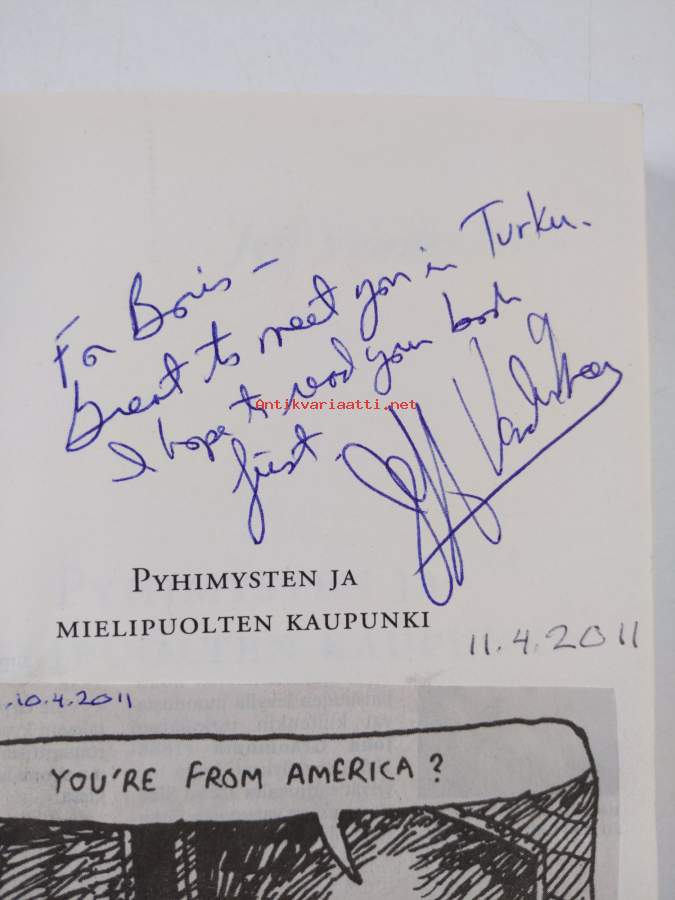 For Boris –
Great to meet you in Turku.
I hope to read your book
first.
Jeff VanderMeer
Antikvariaatti.net
PYHIMYSTEN JA
MIELIPUOLTEN KAUPUNKI
11.4.2011
.10.4.2011
YOU'RE FROM AMERICA?